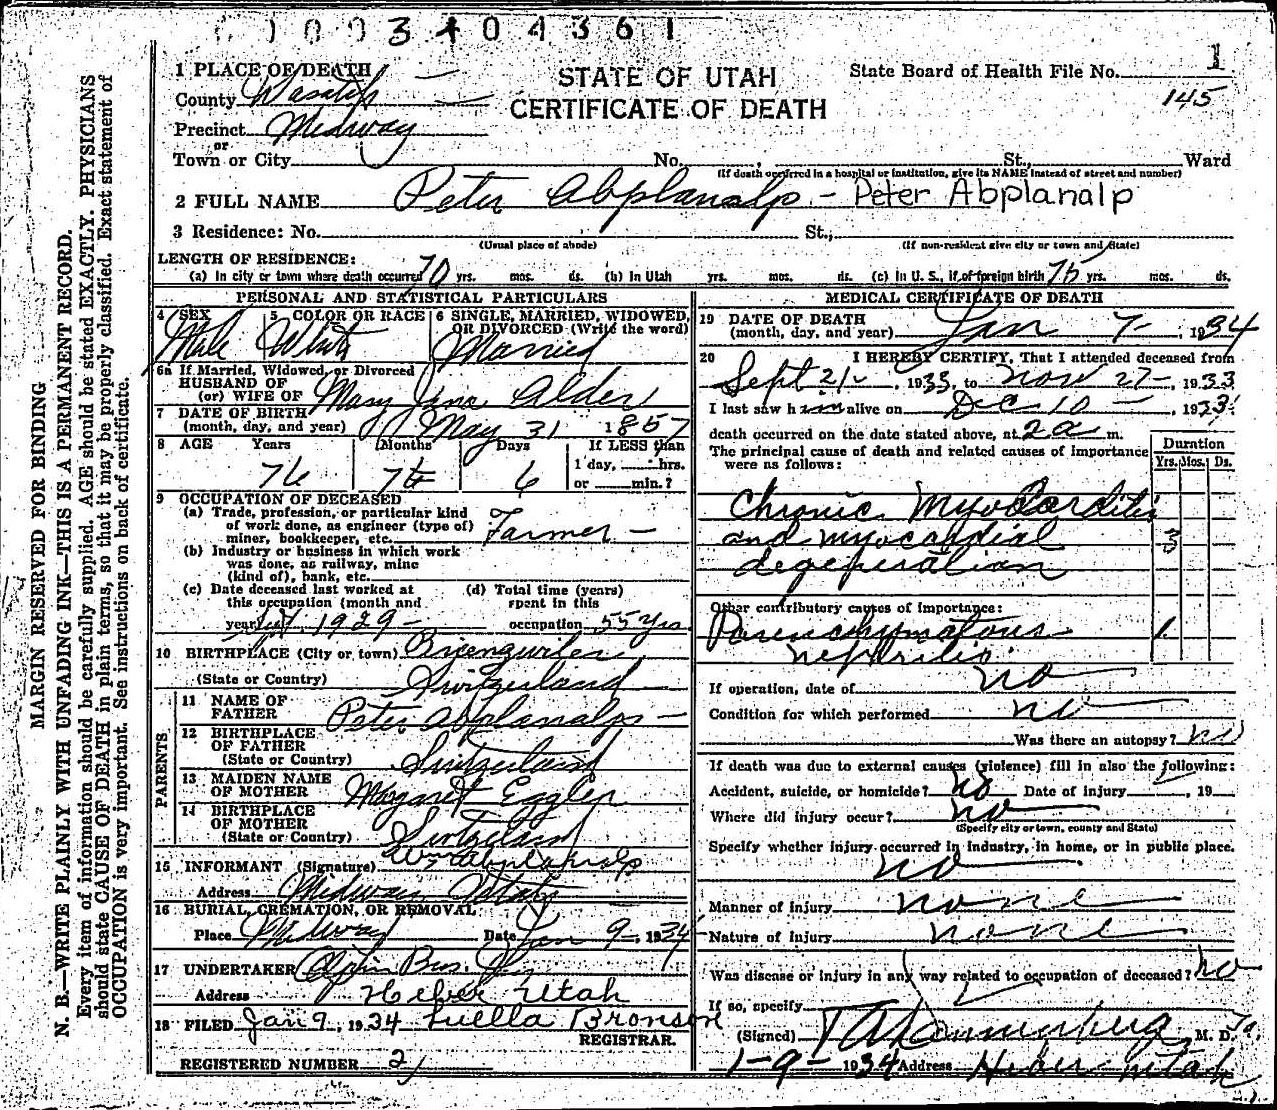 1003404361
1 PLACE OF DEATH
STATE OF UTAH
CERTIFICATE OF DEATH
State Board of Health File No. 1
145
County Wasatch
Precinct Midway
or
Town or City No. , St., Ward
(If death occurred in a hospital or institution, give its NAME instead of street and number)
2 FULL NAME Peter Abplanalp - Peter Abplanalp
3 Residence: No. St.,
(Usual place of abode) (If non-resident give city or town and State)
LENGTH OF RESIDENCE:
(a) In city or town where death occurred 70 yrs. mos. ds. (b) In Utah yrs. mos. ds. (c) In U. S., if of foreign birth 75 yrs. mos. ds.
PERSONAL AND STATISTICAL PARTICULARS
4 SEX 5 COLOR OR RACE 6 SINGLE, MARRIED, WIDOWED,
OR DIVORCED (Write the word)
Male White Married
6a If Married, Widowed, or Divorced
HUSBAND OF
(or) WIFE OF Mary Jane Alder
7 DATE OF BIRTH
(month, day, and year) May 31 1857
8 AGE Years Months Days If LESS than
1 day, hrs.
or min.?
76 7 6
9 OCCUPATION OF DECEASED
(a) Trade, profession, or particular kind
of work done, as engineer (type of)
miner, bookkeeper, etc. Farmer -
(b) Industry or business in which work
was done, as railway, mine
(kind of), bank, etc.
(c) Date deceased last worked at
this occupation (month and
year) 1929 -
(d) Total time (years)
spent in this
occupation 55 yrs.
10 BIRTHPLACE (City or town)
(State or Country) Switzerland
PARENTS
11 NAME OF
FATHER Peter Abplanalp -
12 BIRTHPLACE
OF FATHER
(State or Country) Switzerland
13 MAIDEN NAME
OF MOTHER Margaret Eggler
14 BIRTHPLACE
OF MOTHER
(State or Country) Switzerland
15 INFORMANT (Signature) Abplanalp
Address Midway Utah
16 BURIAL, CREMATION, OR REMOVAL
Place Midway Date Jan 9-, 1934-
17 UNDERTAKER Bros.
Address Heber Utah
18 FILED Jan 9, 1934 Luella Bronson
REGISTRAR.
REGISTERED NUMBER 2
MEDICAL CERTIFICATE OF DEATH
19 DATE OF DEATH
(month, day, and year) Jan 7- 1934
20 I HEREBY CERTIFY, That I attended deceased from
Sept , 1933, to Nov 27-, 1933
I last saw him alive on Dec 10 -, 1933
death occurred on the date stated above, at 2 a m.
The principal cause of death and related causes of importance
were as follows:
Duration
Yrs. Mos. Ds.
Chronic Myocarditis
and myocardial 3
degeneration
Other contributory causes of importance:
Parenchymatous 1
nephritis.
If operation, date of no
Condition for which performed no
Was there an autopsy? no
If death was due to external causes (violence) fill in also the following:
Accident, suicide, or homicide? no Date of injury , 19
Where did injury occur? no
(Specify city or town, county and State)
Specify whether injury occurred in industry, in home, or in public place.
no
Manner of injury none
Nature of injury none
Was disease or injury in any way related to occupation of deceased? no
If so, specify
(Signed) Dannenberg, M. D.
1-9- 1934 Address Heber Utah
MARGIN RESERVED FOR BINDING
N. B.—WRITE PLAINLY WITH UNFADING INK—THIS IS A PERMANENT RECORD.
Every item of information should be carefully supplied. AGE should be stated EXACTLY. PHYSICIANS
should state CAUSE OF DEATH in plain terms, so that it may be properly classified. Exact statement of
OCCUPATION is very important. See instructions on back of certificate.